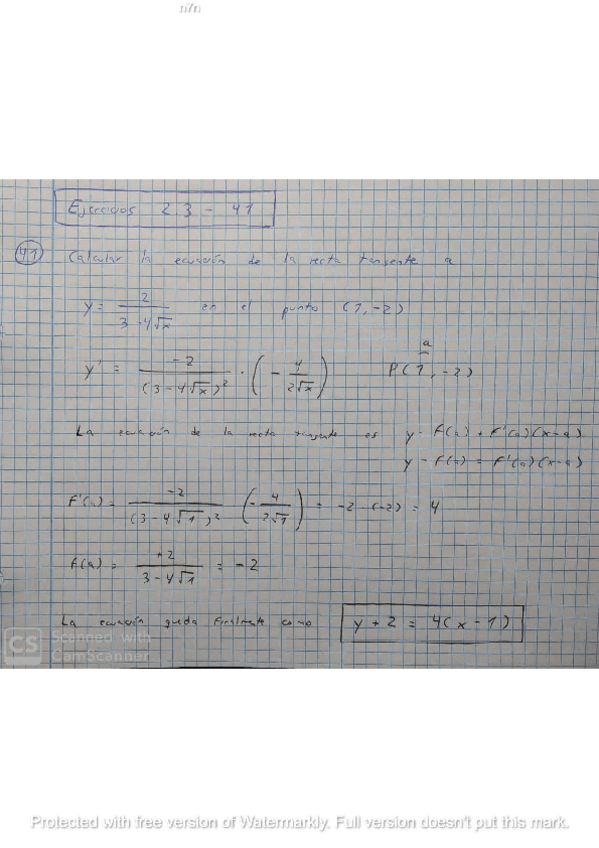 n7n
Ejercicios 2.3 - 41
41 Calcular la ecuación de la recta tangente a
y = 2 / (3 - 4√x) en el punto (1, -2)
y' = -2 / (3 - 4√x)² · (- 4 / 2√x) P(1, -2) a
La ecuación de la recta tangente es y = f(a) + f'(a)(x-a)
y - f(a) = f'(a)(x-a)
f'(a) = -2 / (3 - 4√1)² (- 4 / 2√1) = -2 · (-2) = 4
f(a) = +2 / (3 - 4√1) = -2
La ecuación queda finalmente como y + 2 = 4(x - 1)
CS Scanned with
CamScanner
Protected with free version of Watermarkly. Full version doesn't put this mark.